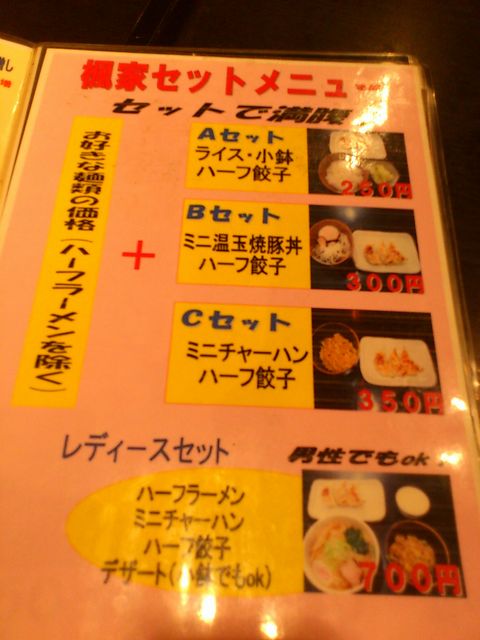 楓家セットメニュー
セットで満腹
お好きな麺類の価格(ハーフラーメンを除く)
+
Aセット
ライス・小鉢
ハーフ餃子
250円
Bセット
ミニ温玉焼豚丼
ハーフ餃子
300円
Cセット
ミニチャーハン
ハーフ餃子
350円
レディースセット
男性でもok!
ハーフラーメン
ミニチャーハン
ハーフ餃子
デザート(小鉢でもok)
700円